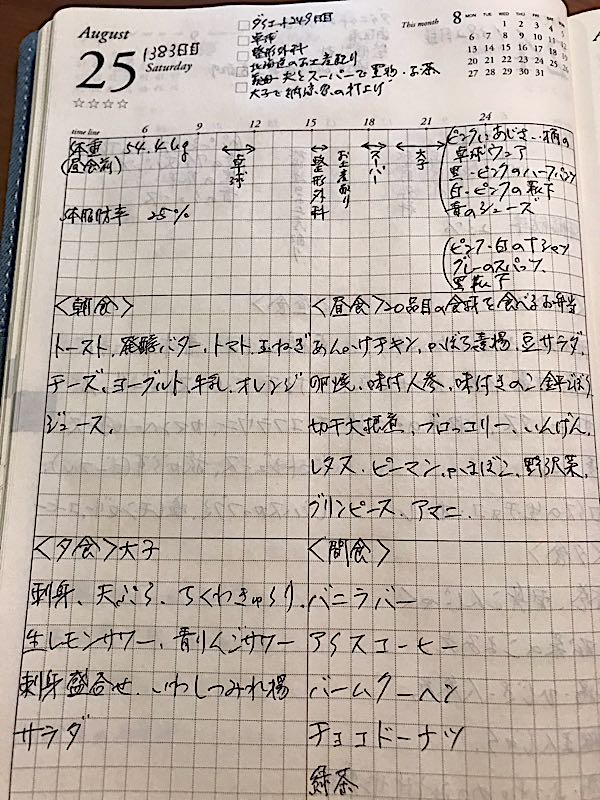 August
25
1383日目
Saturday
ダイエット249日目
卓球
整形外科
北海道のお土産配り
夫とスーパーで買物・お茶
大子で納涼会の打上げ
This month 8
MON TUE WED THU FRI SAT SUN
1 2 3 4 5
6 7 8 9 10 11 12
13 14 15 16 17 18 19
20 21 22 23 24 25 26
27 28 29 30 31
time line 6 9 12 15 18 21 24
体重 54.4kg
(昼食前)
体脂肪率 25%
卓球
整形外科
お土産配り
スーパー
大子
ピンクにあじさい柄の
卓球ウェア
黒・ピンクのハーフパンツ
白・ピンクの靴下
青のシューズ
ピンク・白のTシャツ
グレーのスパッツ
黒靴下
<朝食>
トースト、発酵バター、トマト、玉ねぎ
チーズ、ヨーグルト、牛乳、オレンジ
ジュース、
<昼食>20品目の食材を食べるお弁当
あんかけチキン、かぼちゃ素揚、豆サラダ、
卵焼、味付人参、味付きのこ、金平ごぼう
切干大根煮、ブロッコリー、いんげん、
レタス、ピーマン、かまぼこ、野沢菜、
グリンピース、アマニ
<夕食>大子
刺身、天ぷら、ちくわきゅうり、
生レモンサワー、青りんごサワー
刺身盛合せ、いわしつみれ揚
サラダ
<間食>
バニラバー
アイスコーヒー
バームクーヘン
チョコドーナツ
緑茶